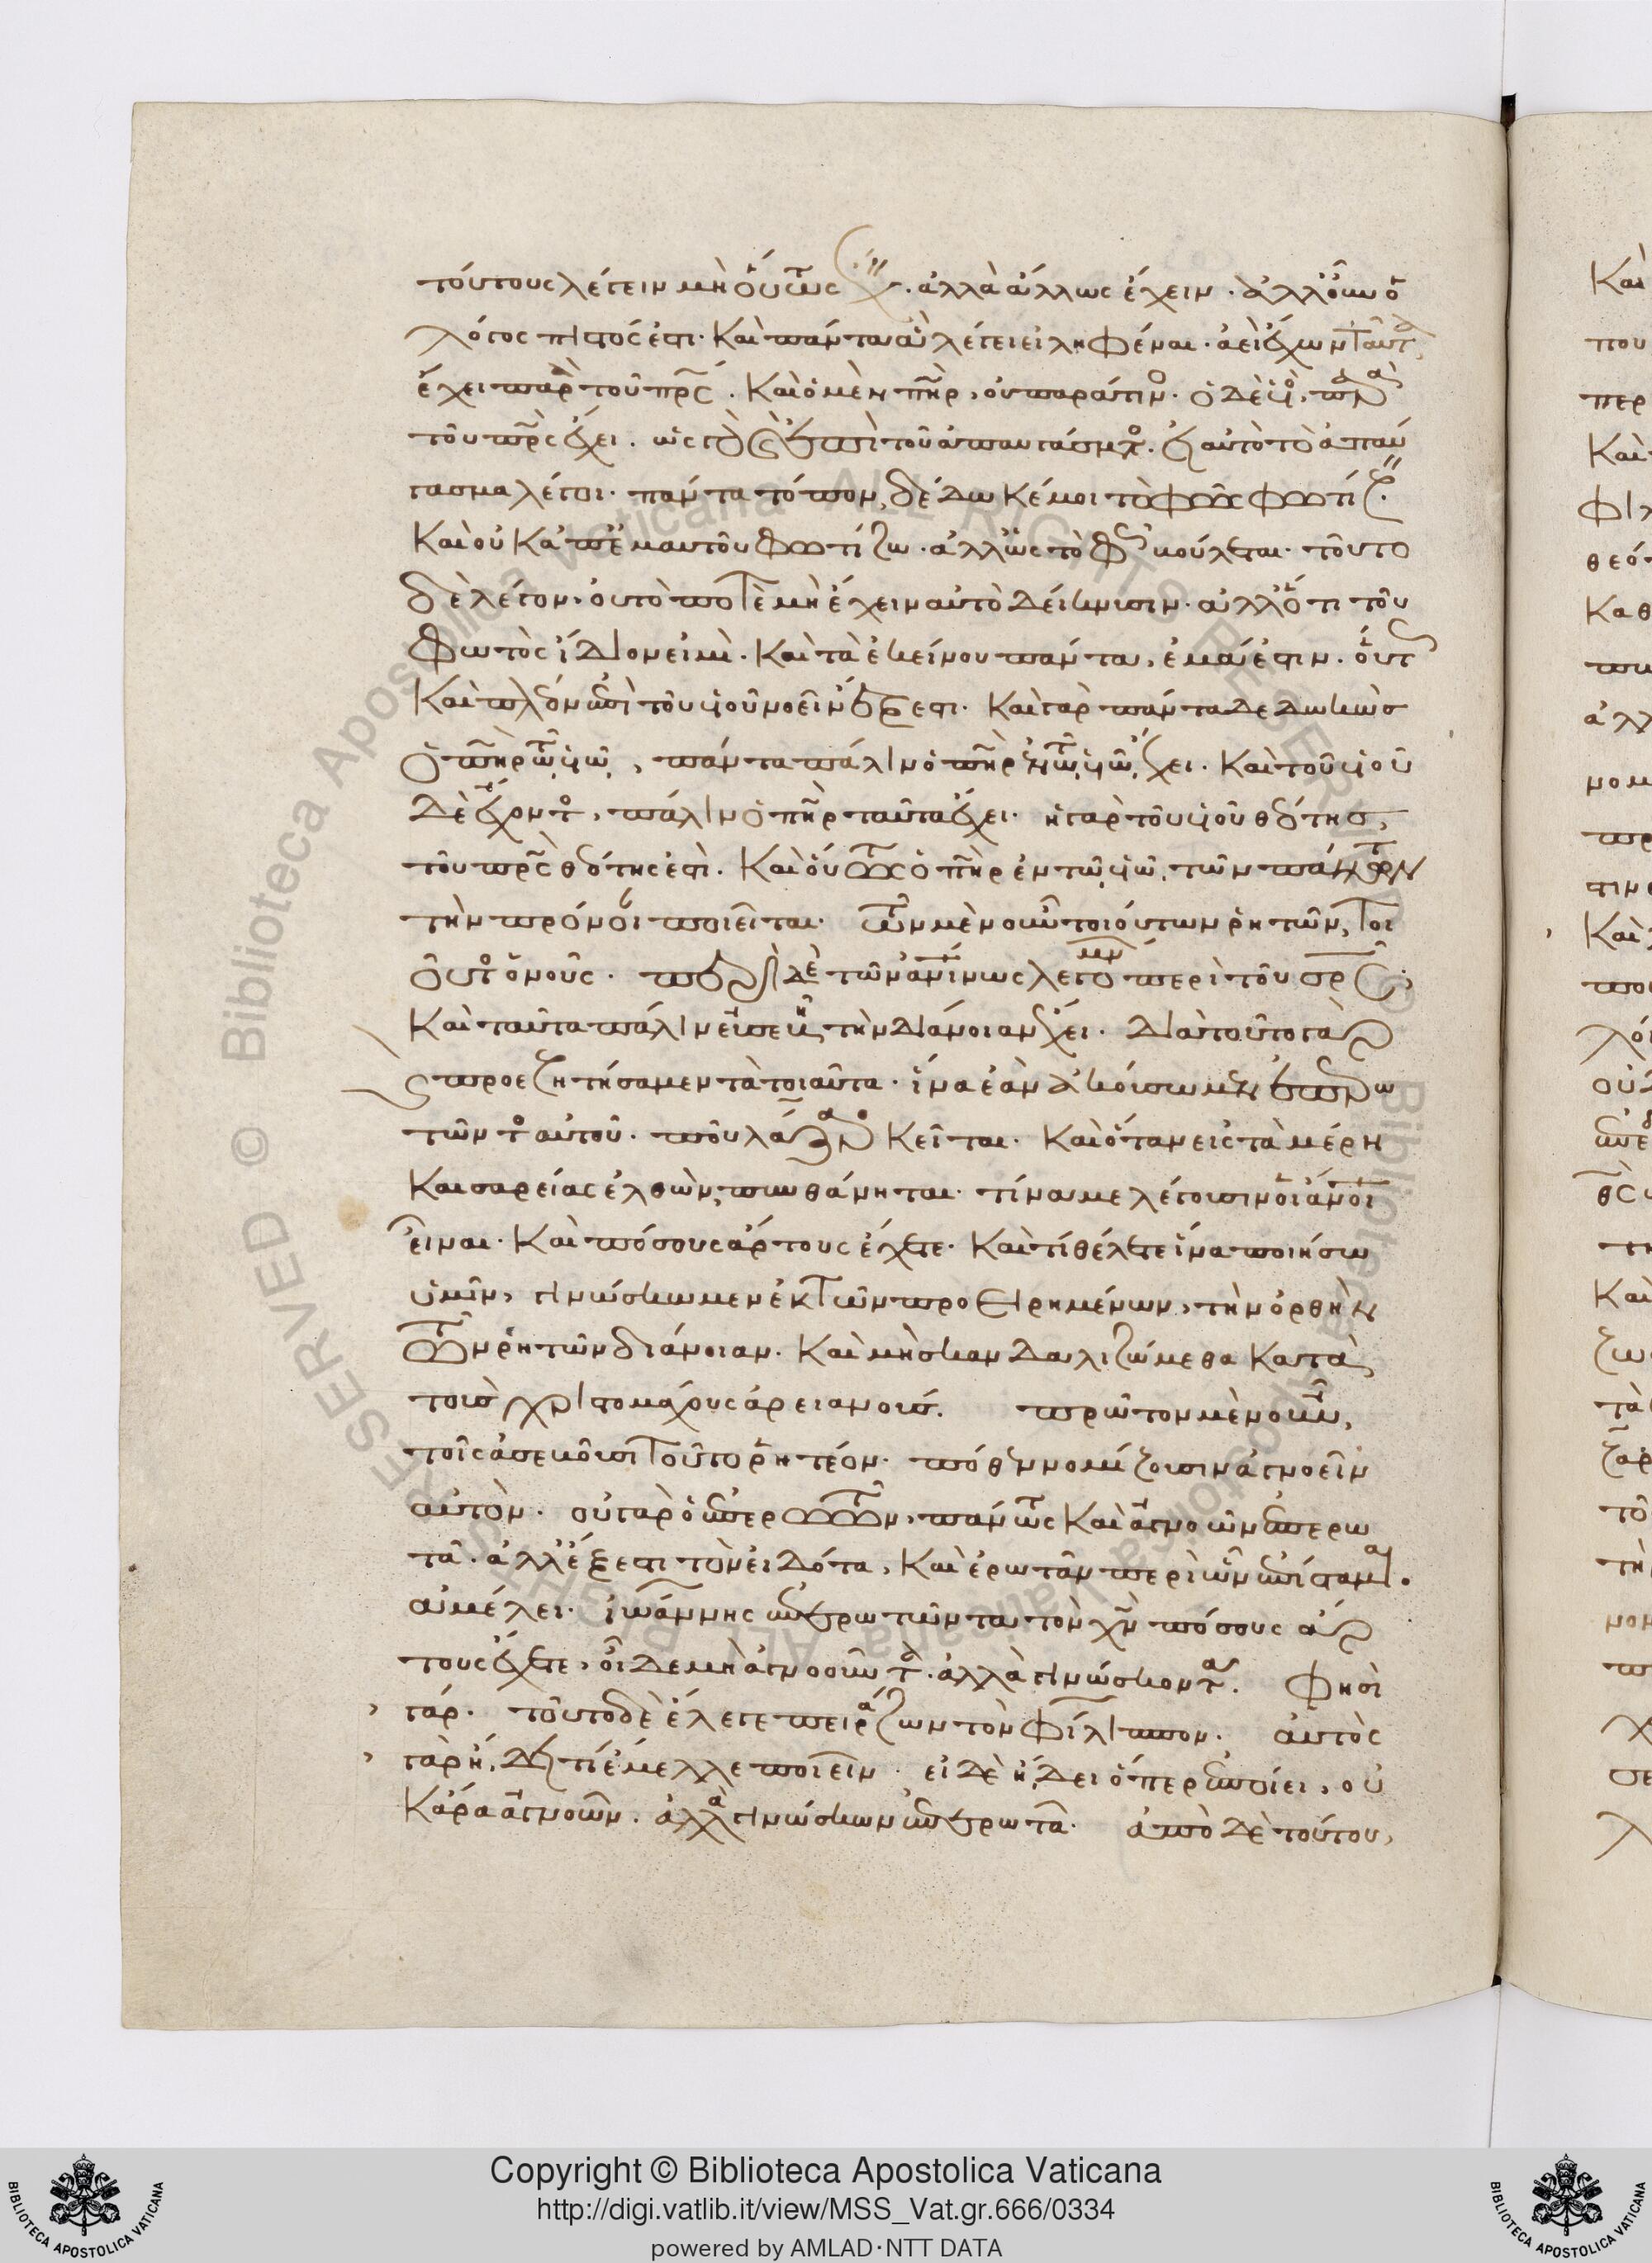 τούτους λέγειν μὴ οὕτως ἔχειν. ἀλλὰ ἄλλως ἔχειν. ἀλλ' οὖν ὁ
λόγος πιστός ἐστι. καὶ πάντα ἃ λέγει εἰληφέναι. ἀεὶ ἔχων ταῦτα,
ἔχει παρὰ τοῦ πρς. καὶ ὁ μὲν πηρ, οὐ παρά τινος. ὁ δὲ υἱὸς, παρὰ
τοῦ πρς ἔχει. ὥσπερ γὰρ ἐπὶ τοῦ ἀπαυγάσματος. ἐὰν αὐτὸ τὸ ἀπαύ
γασμα λέγοι. πάντα τόπον, δέδωκέ μοι τὸ φῶς φωτίζειν.
καὶ οὐκ ἀπ' ἐμαυτοῦ φωτίζω. ἀλλ' ὡς τὸ φῶς βούλεται. τοῦτο
δὲ λέγον, οὐ τὸ ποτὲ μὴ ἔχειν αὐτὸ δείκνυσιν. ἀλλ' ὅτι τοῦ
φωτὸς ἴδιον εἰμὶ. καὶ τὰ ἐκείνου πάντα, ἐμά ἐστιν. οὕτως
καὶ πλέον ἐπὶ τοῦ υἱοῦ νοεῖν ἔξεστι. καὶ γὰρ πάντα δεδωκὼς
ὁ πηρ τῷ υἱῷ, πάντα πάλιν ὁ πηρ ἐν τῷ υἱῷ ἔχει. καὶ τοῦ υἱοῦ
δὲ ἔχοντος, πάλιν ὁ πηρ ταῦτα ἔχει. ἡ γὰρ τοῦ υἱοῦ θεότης,
τοῦ πρς θεότης ἐστὶ. καὶ οὕτως ὁ πηρ ἐν τῷ υἱῷ, τῶν πάντων
τὴν πρόνοιαν ποιεῖται. τῶν μὲν οὖν τοιούτων ῥητῶν, τοι
οῦτος ὁ νοῦς. περὶ δὲ τῶν ἀνθρωπίνως λεγομένων περὶ τοῦ σρς,
καὶ ταῦτα πάλιν εὐσεβῆ τὴν διάνοιαν ἔχει. διὰ τοῦτο γὰρ
προεζητήσαμεν τὰ τοιαῦτα. ἵνα ἐὰν ἀκούσωμεν ἐπερω
τῶντος αὐτοῦ. ποῦ λάζαρος κεῖται. καὶ ὅταν εἰς τὰ μέρη
καισαρείας ἐλθὼν, πυνθάνηται. τίνα με λέγουσιν οἱ ἄνοι
εἶναι. καὶ πόσους ἄρτους ἔχετε. καὶ τί θέλετε ἵνα ποιήσω
ὑμῖν, γινώσκωμεν ἐκ τῶν προειρημένων, τὴν ὀρθὴν
τῶν ῥητῶν διάνοιαν. καὶ μὴ σκανδαλιζώμεθα κατὰ
τοὺς χριστομάχους ἀρειανούς. πρῶτον μὲν οὖν,
τοῖς ἀσεβοῦσι τοῦτο ῥητέον. πόθεν νομίζουσιν ἀγνοεῖν
αὐτὸν. οὐ γὰρ ὁ ἐπερωτῶν, πάντως καὶ ἀγνοῶν ἐπερω
τᾶ. ἀλλ' ἔξεστι τὸν εἰδότα, καὶ ἐρωτᾶν περὶ ὧν ἐπίσταται.
ἀμέλει. ἰωάννης ἐπερωτῶντα τὸν χν πόσους ἄρ
τους ἔχετε, οἶδε μὴ ἀγνοοῦντα. ἀλλὰ γινώσκοντα. φησὶ
γάρ. τοῦτο δὲ ἔλεγε πειράζων τὸν φίλιππον. αὐτὸς
γὰρ ἤδει τί ἔμελλε ποιεῖν. εἰ δὲ ἤδει ὅπερ ἐποίει, οὐ
κάρα ἀγνοῶν. ἀλλὰ γινώσκων ἐπερωτᾶ. ἀπὸ δὲ τούτου,
Copyright © Biblioteca Apostolica Vaticana
http://digi.vatlib.it/view/MSS_Vat.gr.666/0334
powered by AMLAD·NTT DATA
BIBLIOTECA APOSTOLICA VATICANA
BIBLIOTECA APOSTOLICA VATICANA